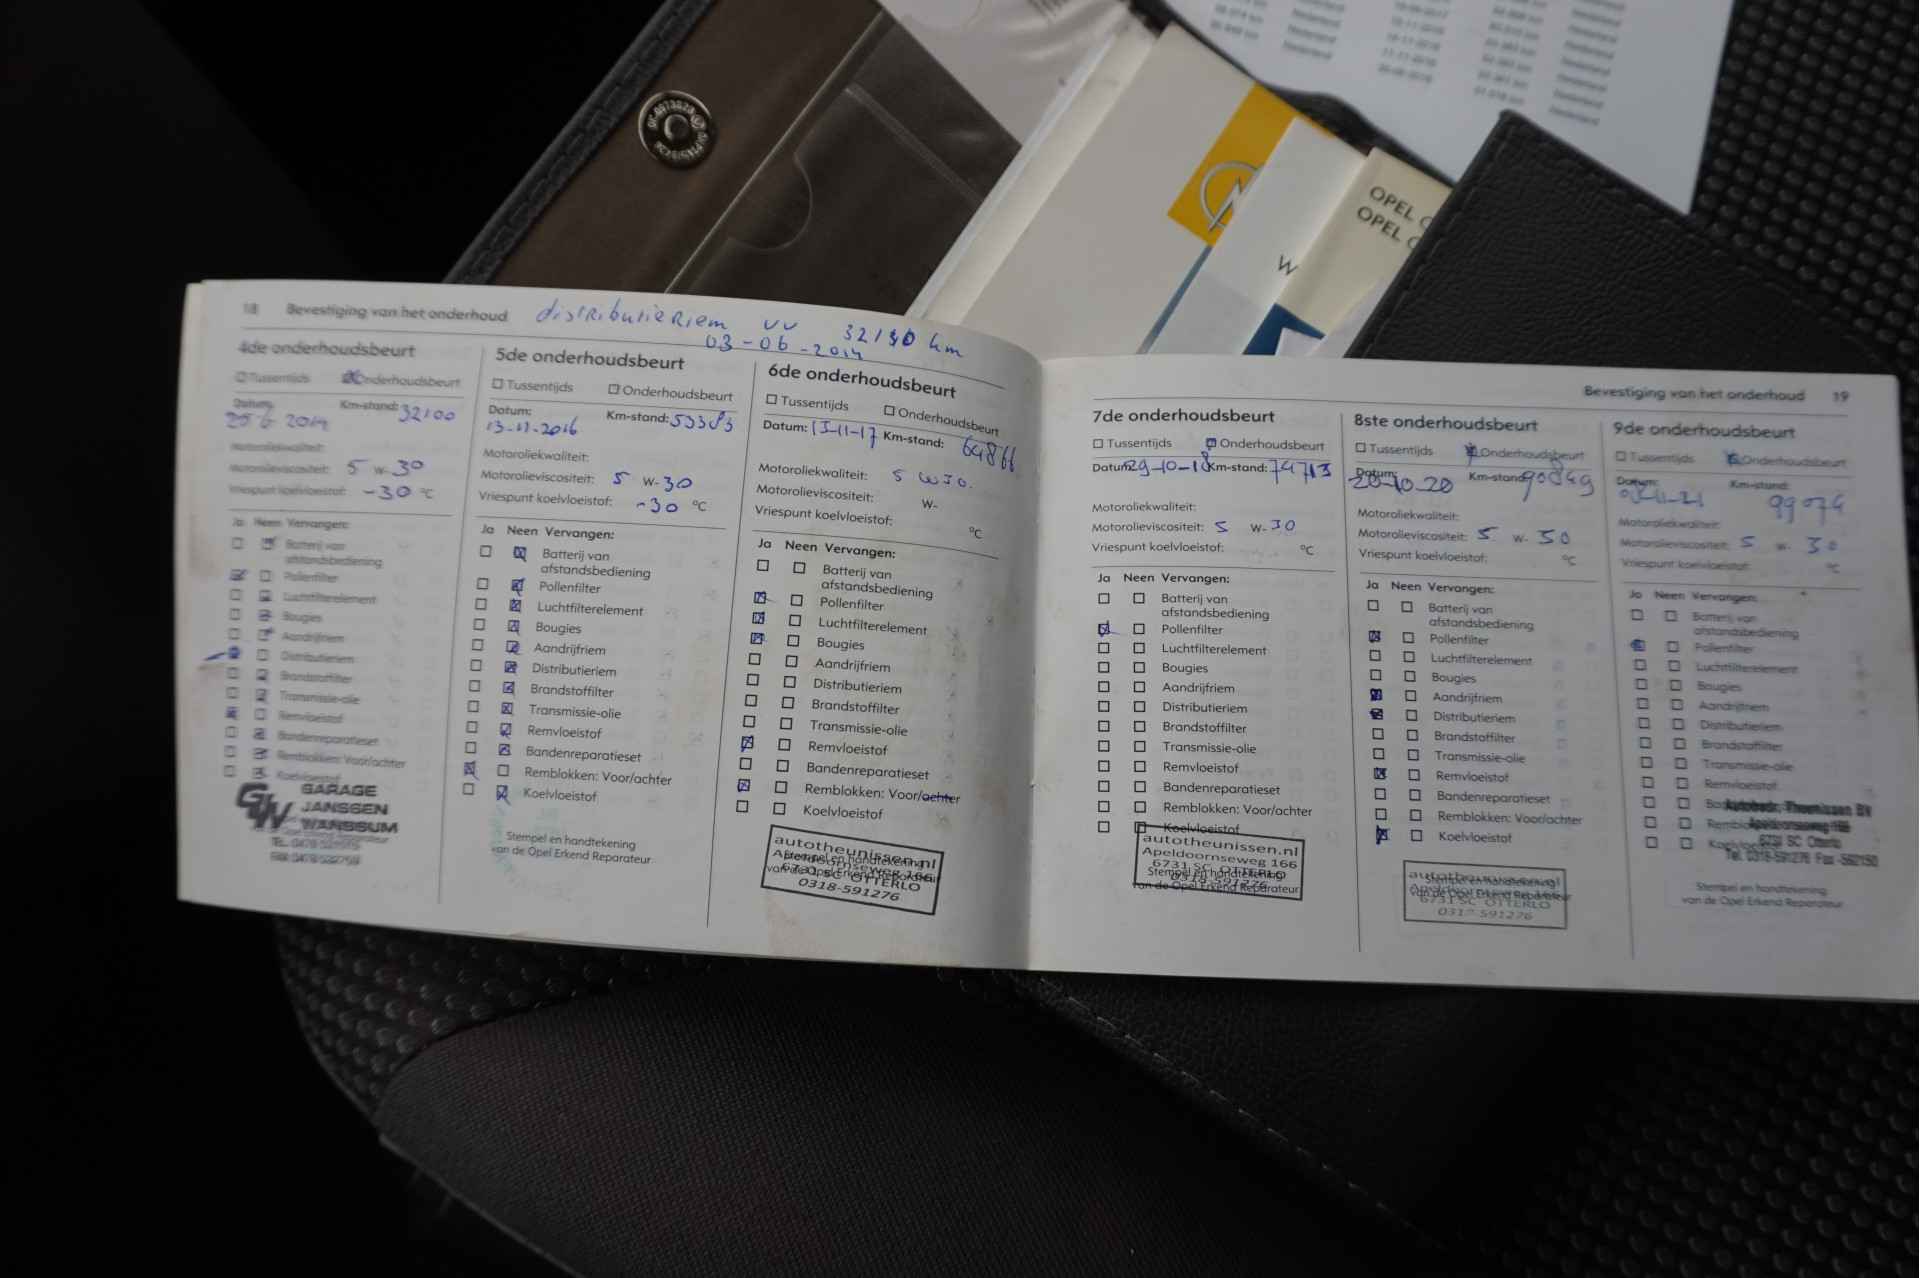 OPEL
OPEL
W
18 Bevestiging van het onderhoud distributieriem vv 32130 km
03-06-2014
4de onderhoudsbeurt
Tussentijds Onderhoudsbeurt
Datum: Km-stand: 32100
25 6 2014
Motoroliekwaliteit:
Motorolieviscositeit: 5 W-30
Vriespunt koelvloeistof: -30 °C
Ja Neen Vervangen:
Batterij van
afstandsbediening
Pollenfilter
Luchtfilterelement
Bougies
Aandrijfriem
Distributieriem
Brandstoffilter
Transmissie-olie
Remvloeistof
Bandenreparatieset
Remblokken: Voor/achter
Koelvloeistof
GJW GARAGE
JANSSEN
WANSSUM
5de onderhoudsbeurt
Tussentijds Onderhoudsbeurt
Datum: Km-stand: 53383
13-11-2016
Motoroliekwaliteit:
Motorolieviscositeit: 5 W-30
Vriespunt koelvloeistof: -30 °C
Ja Neen Vervangen:
Batterij van
afstandsbediening
Pollenfilter
Luchtfilterelement
Bougies
Aandrijfriem
Distributieriem
Brandstoffilter
Transmissie-olie
Remvloeistof
Bandenreparatieset
Remblokken: Voor/achter
Koelvloeistof
Stempel en handtekening
van de Opel Erkend Reparateur
6de onderhoudsbeurt
Tussentijds Onderhoudsbeurt
Datum: 13-11-17 Km-stand: 64866
Motoroliekwaliteit: 5 W30.
Motorolieviscositeit: W-
Vriespunt koelvloeistof: °C
Ja Neen Vervangen:
Batterij van
afstandsbediening
Pollenfilter
Luchtfilterelement
Bougies
Aandrijfriem
Distributieriem
Brandstoffilter
Transmissie-olie
Remvloeistof
Bandenreparatieset
Remblokken: Voor/achter
Koelvloeistof
autotheunissen.nl
Stempel en handtekening
Apeldoornseweg 166
van de Opel Erkend Reparateur
6731 SC OTTERLO
0318-591276
Bevestiging van het onderhoud 19
7de onderhoudsbeurt
Tussentijds Onderhoudsbeurt
Datum: 29-10-18 Km-stand: 74713
Motoroliekwaliteit:
Motorolieviscositeit: 5 W-30
Vriespunt koelvloeistof: °C
Ja Neen Vervangen:
Batterij van
afstandsbediening
Pollenfilter
Luchtfilterelement
Bougies
Aandrijfriem
Distributieriem
Brandstoffilter
Transmissie-olie
Remvloeistof
Bandenreparatieset
Remblokken: Voor/achter
Koelvloeistof
autotheunissen.nl
Apeldoornseweg 166
6731 SC OTTERLO
Stempel en handtekening
0318-591276
van de Opel Erkend Reparateur
8ste onderhoudsbeurt
Tussentijds Onderhoudsbeurt
Datum: Km-stand: 90849
20-10-20
Motoroliekwaliteit:
Motorolieviscositeit: 5 W-30
Vriespunt koelvloeistof: °C
Ja Neen Vervangen:
Batterij van
afstandsbediening
Pollenfilter
Luchtfilterelement
Bougies
Aandrijfriem
Distributieriem
Brandstoffilter
Transmissie-olie
Remvloeistof
Bandenreparatieset
Remblokken: Voor/achter
Koelvloeistof
autotheunissen.nl
Stempel en handtekening
van de Opel Erkend Reparateur
6731 SC OTTERLO
0317-591276
9de onderhoudsbeurt
Tussentijds Onderhoudsbeurt
Datum: Km-stand:
99074
Motoroliekwaliteit:
Motorolieviscositeit: 5 W-30
Vriespunt koelvloeistof: °C
Ja Neen Vervangen:
Batterij van
afstandsbediening
Pollenfilter
Luchtfilterelement
Bougies
Aandrijfriem
Distributieriem
Brandstoffilter
Transmissie-olie
Remvloeistof
Autobedr. Theunissen BV
Apeldoornseweg 166
6731 SC Otterlo
Tel. 0318-591276 Fax -592150
Stempel en handtekening
van de Opel Erkend Reparateur